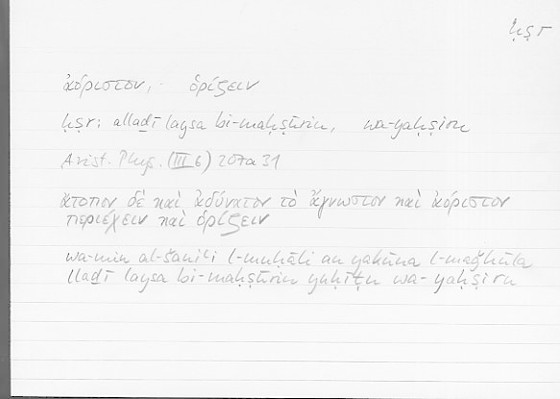 ḥṣr
ἀόριστον, ὁρίζειν
ḥṣr; alladī laysa bi-maḥṣūrin, wa-yaḥṣiru
Arist. Phys. (III 6) 207a31
ἄτοπον δὲ καὶ ἀδύνατον τὸ ἄγνωστον καὶ ἀόριστον
περιέχειν καὶ ὁρίζειν
wa-min al-šanīʿi l-muḥāli an yakūna l-maǧhūla
lladī laysa bi-maḥṣūrin yuḥīṭu wa-yaḥṣiru